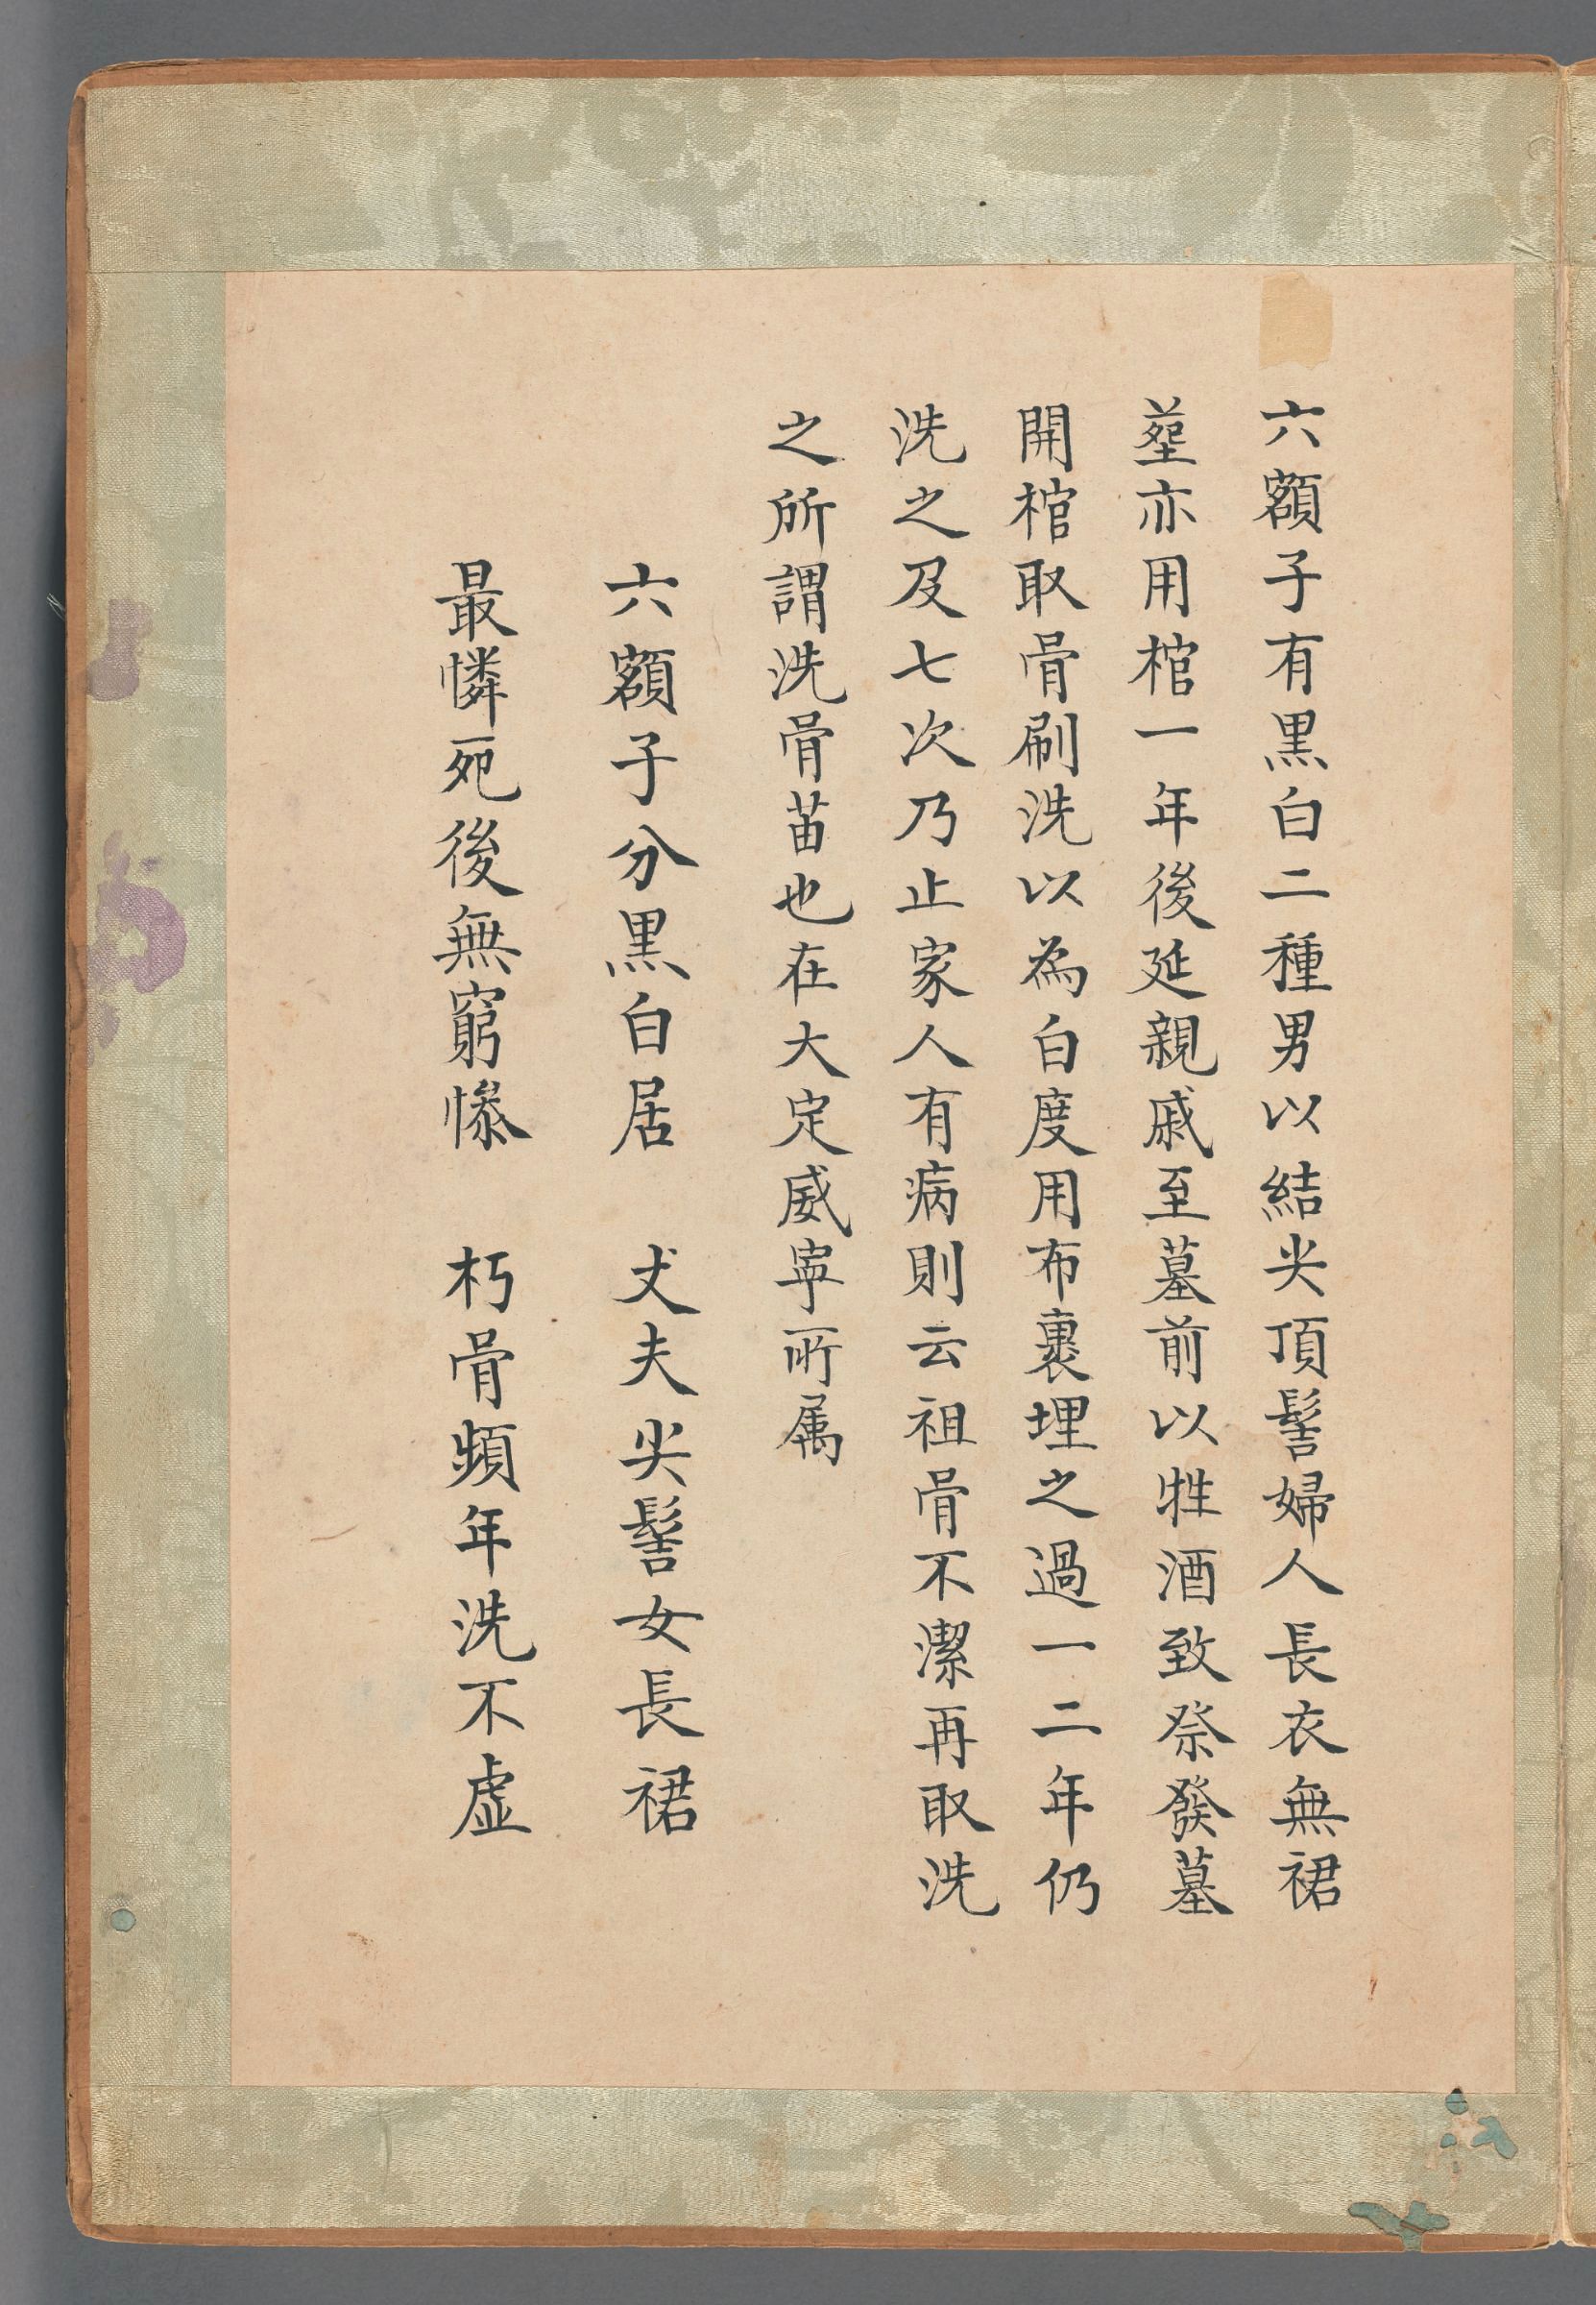 六額子有黒白二種男以結尖頂髻婦人長衣無裙
塟亦用棺一年後延親戚至墓前以牲酒致祭發墓
開棺取骨刷洗以為白度用布裹埋之過一二年仍
洗之及七次乃止家人有病則云祖骨不潔再取洗
之所謂洗骨苗也在大定威寧所属
六額子分黒白居　丈夫尖髻女長裙
最憐死後無窮惨　朽骨頻年洗不虚